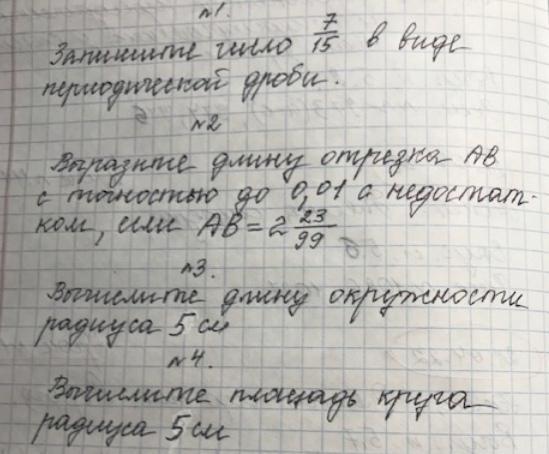 №1.
Запишите число 7/15 в виде
периодической дроби.
№2
Выразите длину отрезка AB
с точностью до 0,01 с недостат-
ком, если AB = 2 23/99
№3.
Вычислите длину окружности
радиуса 5 см
№4.
Вычислите площадь круга
радиуса 5 см